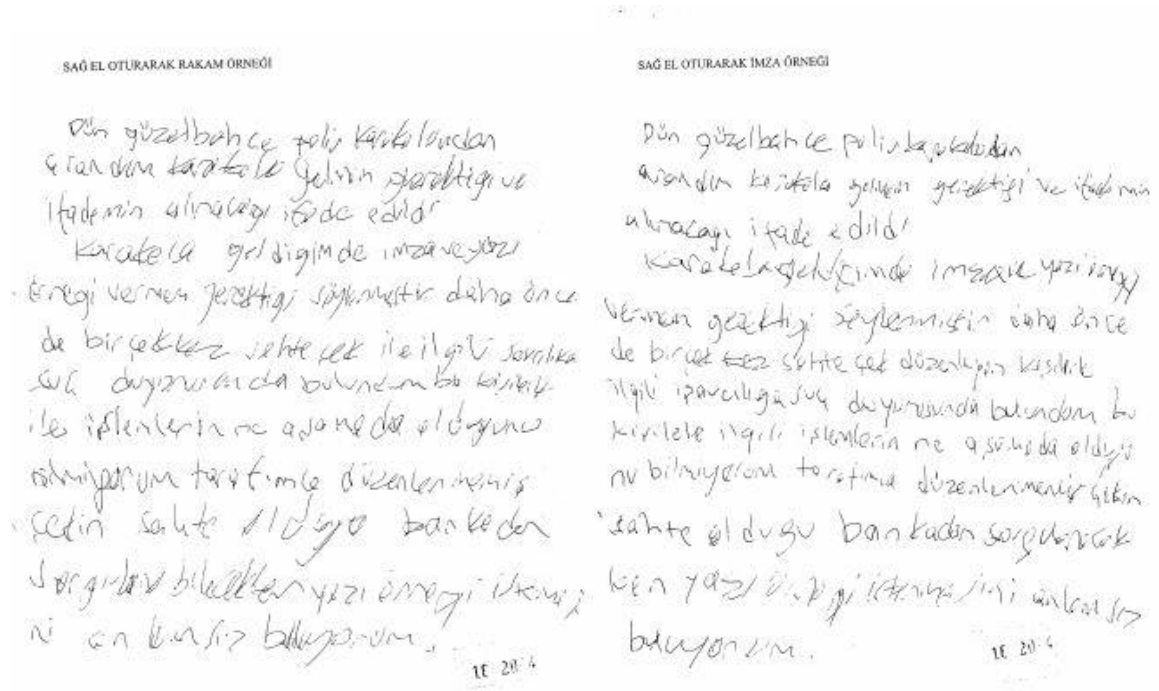 SAĞ EL OTURARAK RAKAM ÖRNEĞİ
Dün güzelbahce polis karakolundan
arandım karakola gelmem gerektiği ve
ifademin alınacağı ifade edildi
Karakola geldiğimde imza ve yazı
örneği vermem gerektiği söylenmiştir daha önce
de birçok kez sahte çek ile ilgili savcılıka
suç duyurusunda bulundum bu kişilerle
işlemlerin ne aşamada olduğunu
bilmiyorum tarafımca düzenlenmemiş
çekin sahte olduğu bankadan
yazı örneği
anlamsız buluyorum.
SAĞ EL OTURARAK İMZA ÖRNEĞİ
Dün güzelbahce polis karakoludan
arandım karakola gelmem gerektiği ve ifademin
alınacagı ifade edildi
Karakola imza ve yazı
vermem gerektigi söylenmiştir daha önce
de birçok kez sahte çek düzenleyen
ilgili suç duyurusunda bulundum bu
ilgili işlemlerin ne aşamada olduğu
nu bilmiyorum tarafımca düzenlenmemiş çekin
sahte olduğu bankadan
ken yazı anlamsız
buluyorum.